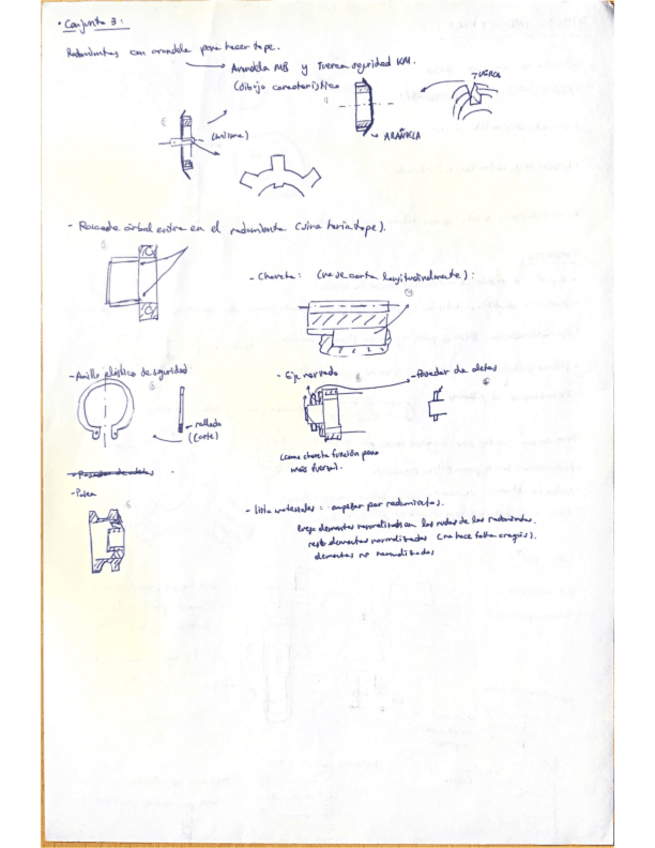 · Conjunto 3:
Rodamientos con arandela para hacer tope.
Arandela MB y Tuerca seguridad KM.
(dibujo característico
TUERCA
ARANDELA
- Rosca de árbol entre en el rodamiento (sino haría tope).
- Chaveta: (no se corta longitudinalmente):
- Anillo elástico de seguridad
- Eje nervado
- Pasador de aletas
rallado
(corte)
(como chaveta función para
más fuerza).
- Pasador de aletas
- Polea
- lista materiales: empezar por rodamientos.
elementos normalizados en las de los rodamientos.
resto elementos normalizados (no hace falta croquis).
elementos no normalizados